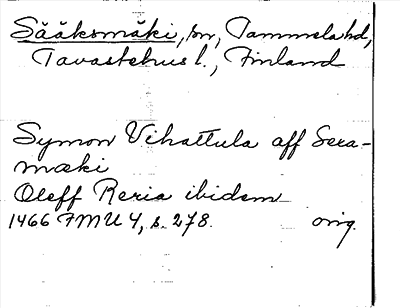 Sääksmäki, sn, Tammela hd,
Tavastehus l., Finland
Symon Vihattula aff Sera-
mæki
Oleff Reria ibidem
1466 FMU 4, s. 278. orig.